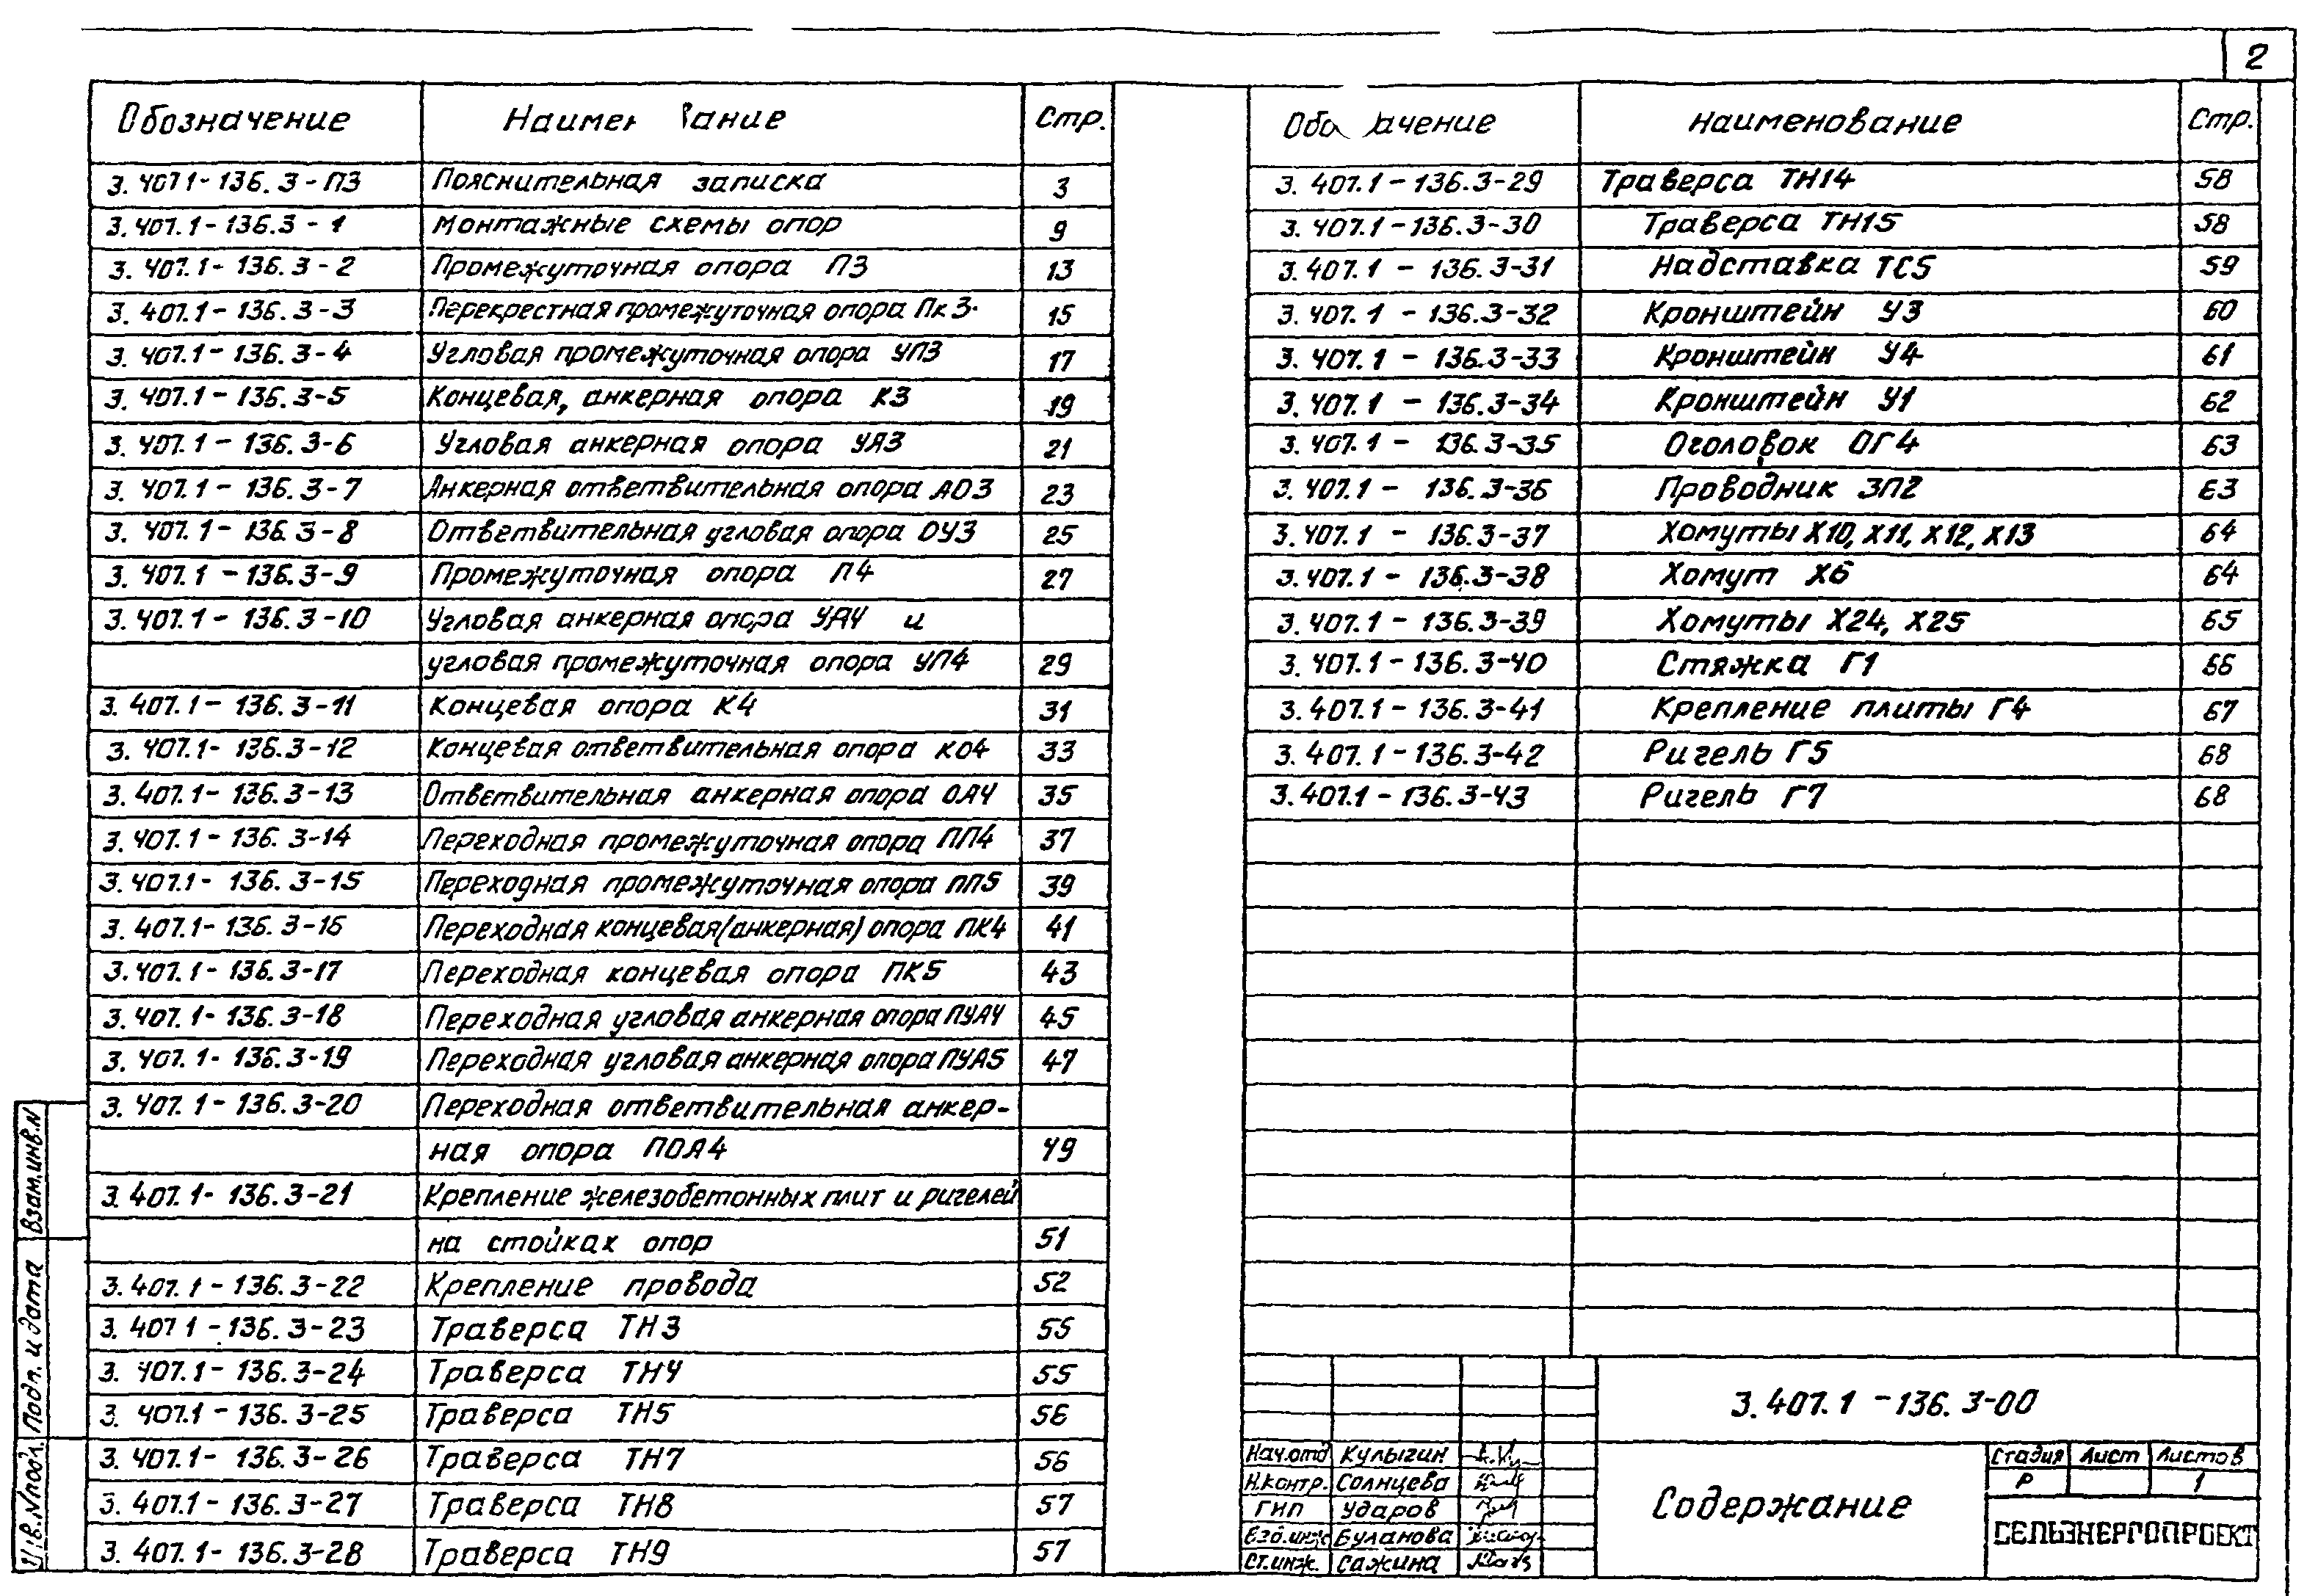 2
Обозначение Наименование Стр.
3.407.1-136.3-ПЗ Пояснительная записка 3
3.407.1-136.3-1 Монтажные схемы опор 9
3.407.1-136.3-2 Промежуточная опора П3 13
3.407.1-136.3-3 Перекрестная промежуточная опора Пк3 15
3.407.1-136.3-4 Угловая промежуточная опора УП3 17
3.407.1-136.3-5 Концевая, анкерная опора К3 19
3.407.1-136.3-6 Угловая анкерная опора УА3 21
3.407.1-136.3-7 Анкерная ответвительная опора АО3 23
3.407.1-136.3-8 Ответвительная угловая опора ОУ3 25
3.407.1-136.3-9 Промежуточная опора П4 27
3.407.1-136.3-10 Угловая анкерная опора УА4 и
угловая промежуточная опора УП4 29
3.407.1-136.3-11 Концевая опора К4 31
3.407.1-136.3-12 Концевая ответвительная опора КО4 33
3.407.1-136.3-13 Ответвительная анкерная опора ОА4 35
3.407.1-136.3-14 Переходная промежуточная опора ПП4 37
3.407.1-136.3-15 Переходная промежуточная опора ПП5 39
3.407.1-136.3-16 Переходная концевая (анкерная) опора ПК4 41
3.407.1-136.3-17 Переходная концевая опора ПК5 43
3.407.1-136.3-18 Переходная угловая анкерная опора ПУА4 45
3.407.1-136.3-19 Переходная угловая анкерная опора ПУА5 47
3.407.1-136.3-20 Переходная ответвительная анкер-
ная опора ПОА4 49
3.407.1-136.3-21 Крепление железобетонных плит и ригелей
на стойках опор 51
3.407.1-136.3-22 Крепление провода 52
3.407.1-136.3-23 Траверса ТН3 55
3.407.1-136.3-24 Траверса ТН4 55
3.407.1-136.3-25 Траверса ТН5 56
3.407.1-136.3-26 Траверса ТН7 56
3.407.1-136.3-27 Траверса ТН8 57
3.407.1-136.3-28 Траверса ТН9 57
Обозначение Наименование Стр.
3.407.1-136.3-29 Траверса ТН14 58
3.407.1-136.3-30 Траверса ТН15 58
3.407.1-136.3-31 Надставка ТС5 59
3.407.1-136.3-32 Кронштейн У3 60
3.407.1-136.3-33 Кронштейн У4 61
3.407.1-136.3-34 Кронштейн У1 62
3.407.1-136.3-35 Оголовок ОГ4 63
3.407.1-136.3-36 Проводник ЗП2 63
3.407.1-136.3-37 Хомуты Х10, Х11, Х12, Х13 64
3.407.1-136.3-38 Хомут Х6 64
3.407.1-136.3-39 Хомуты Х24, Х25 65
3.407.1-136.3-40 Стяжка Г1 66
3.407.1-136.3-41 Крепление плиты Г4 67
3.407.1-136.3-42 Ригель Г5 68
3.407.1-136.3-43 Ригель Г7 68
3.407.1-136.3-00
Нач.отд Кулыгин
Н.контр. Солнцева
ГИП Ударов
Вед.инж Буланова
Ст.инж. Сажина
Содержание
Стадия Лист Листов
Р 1
СЕЛЬЭНЕРГОПРОЕКТ
Взам.инв.N
Подп. и дата
Инв.N подл.